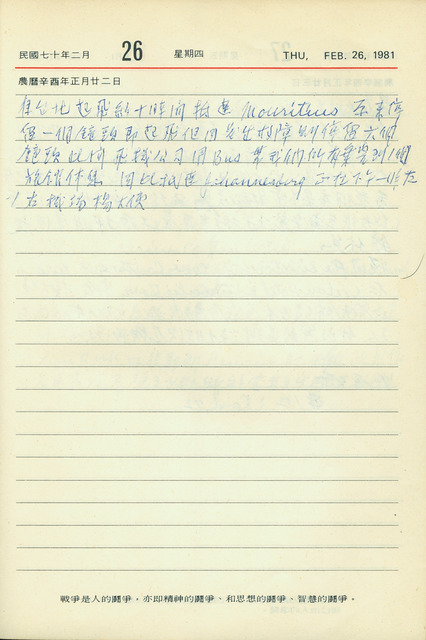 民國七十年二月 26 星期四 THU, FEB. 26, 1981
農曆辛酉年正月廿二日
自台北起飛約十時間抵達 Mauritius 原來停
留一個鐘頭即起飛但因發生故障別停留六個
鐘頭 此間飛機公司用Bus 帶我們所有乘客到一個
旅館休息 因此抵達 Johannesburg 正在下午一時左
右 機場楊大使
戰爭是人的鬪爭,亦即精神的鬪爭、和思想的鬪爭、智慧的鬪爭。